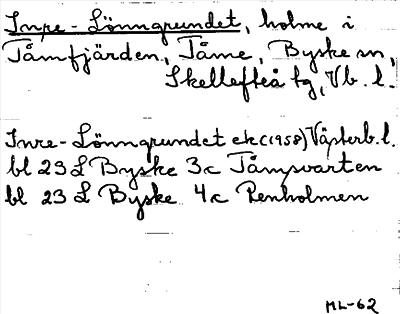 Inre-Lönngrundet, holme i
Tåmfjärden, Tåme, Byske sn,
Skellefteå tg, Vb. l.
Inre-Lönngrundet ek (1958) Västerb. l.
bl 23 L Byske 3c Tåmsvarten
bl 23 L Byske 4c Renholmen
ML-62